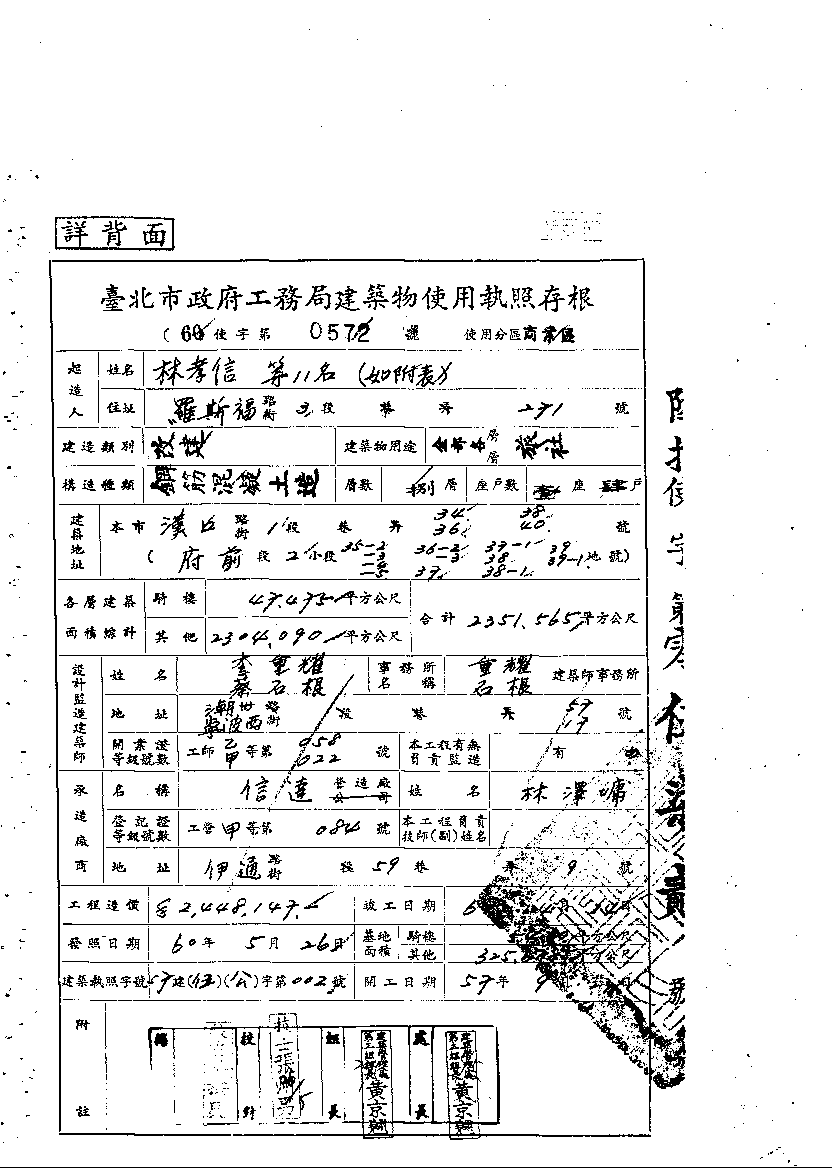 詳背面
臺北市政府工務局建築物使用執照存根
(60使字第 0572 號 使用分區商業區
起造人 姓名 林孝信 等11名 (如附表)
住址 羅斯福路街 3段 巷 弄 271 號
建造類別 改建 建築物用途 全部各層層 旅社
構造種類 鋼筋混凝土造 層數 捌層 座戶數 壹座 肆戶
建築地址 本市 漢口路街 1段 巷 弄 34 36 38 40 號
(府前段 2小段 35-2 36-2 37 38 38-1 39 39-1 地號)
各層建築面積總計 騎樓 47.475平方公尺 合計 2351.565平方公尺
其他 2304.090平方公尺
設計監造建築師 姓名 李重耀 蔡石根 事務所名稱 重耀 石根 建築師事務所
地址 潮州 寧波西路街 段 巷 弄 57 17 號
開業證等級號數 工師 乙甲等第 958 022 號 本工程有無負責監造 有
承造廠商 名稱 信達 營造廠公司 姓名 林澤墉
登記證等級號數 工營甲等第 084 號 本工程負責技師(副)姓名
地址 伊通路街 段 59 巷 弄 9 號
工程造價 2,448,147 竣工日期
發照日期 60年 5月 26日 基地面積 騎樓 平方公尺
其他 325. 平方公尺
建築執照字號 57建(城)(公)字第002號 開工日期 57年 9
附註
校對 組長 處長
黃京翔 黃京翔